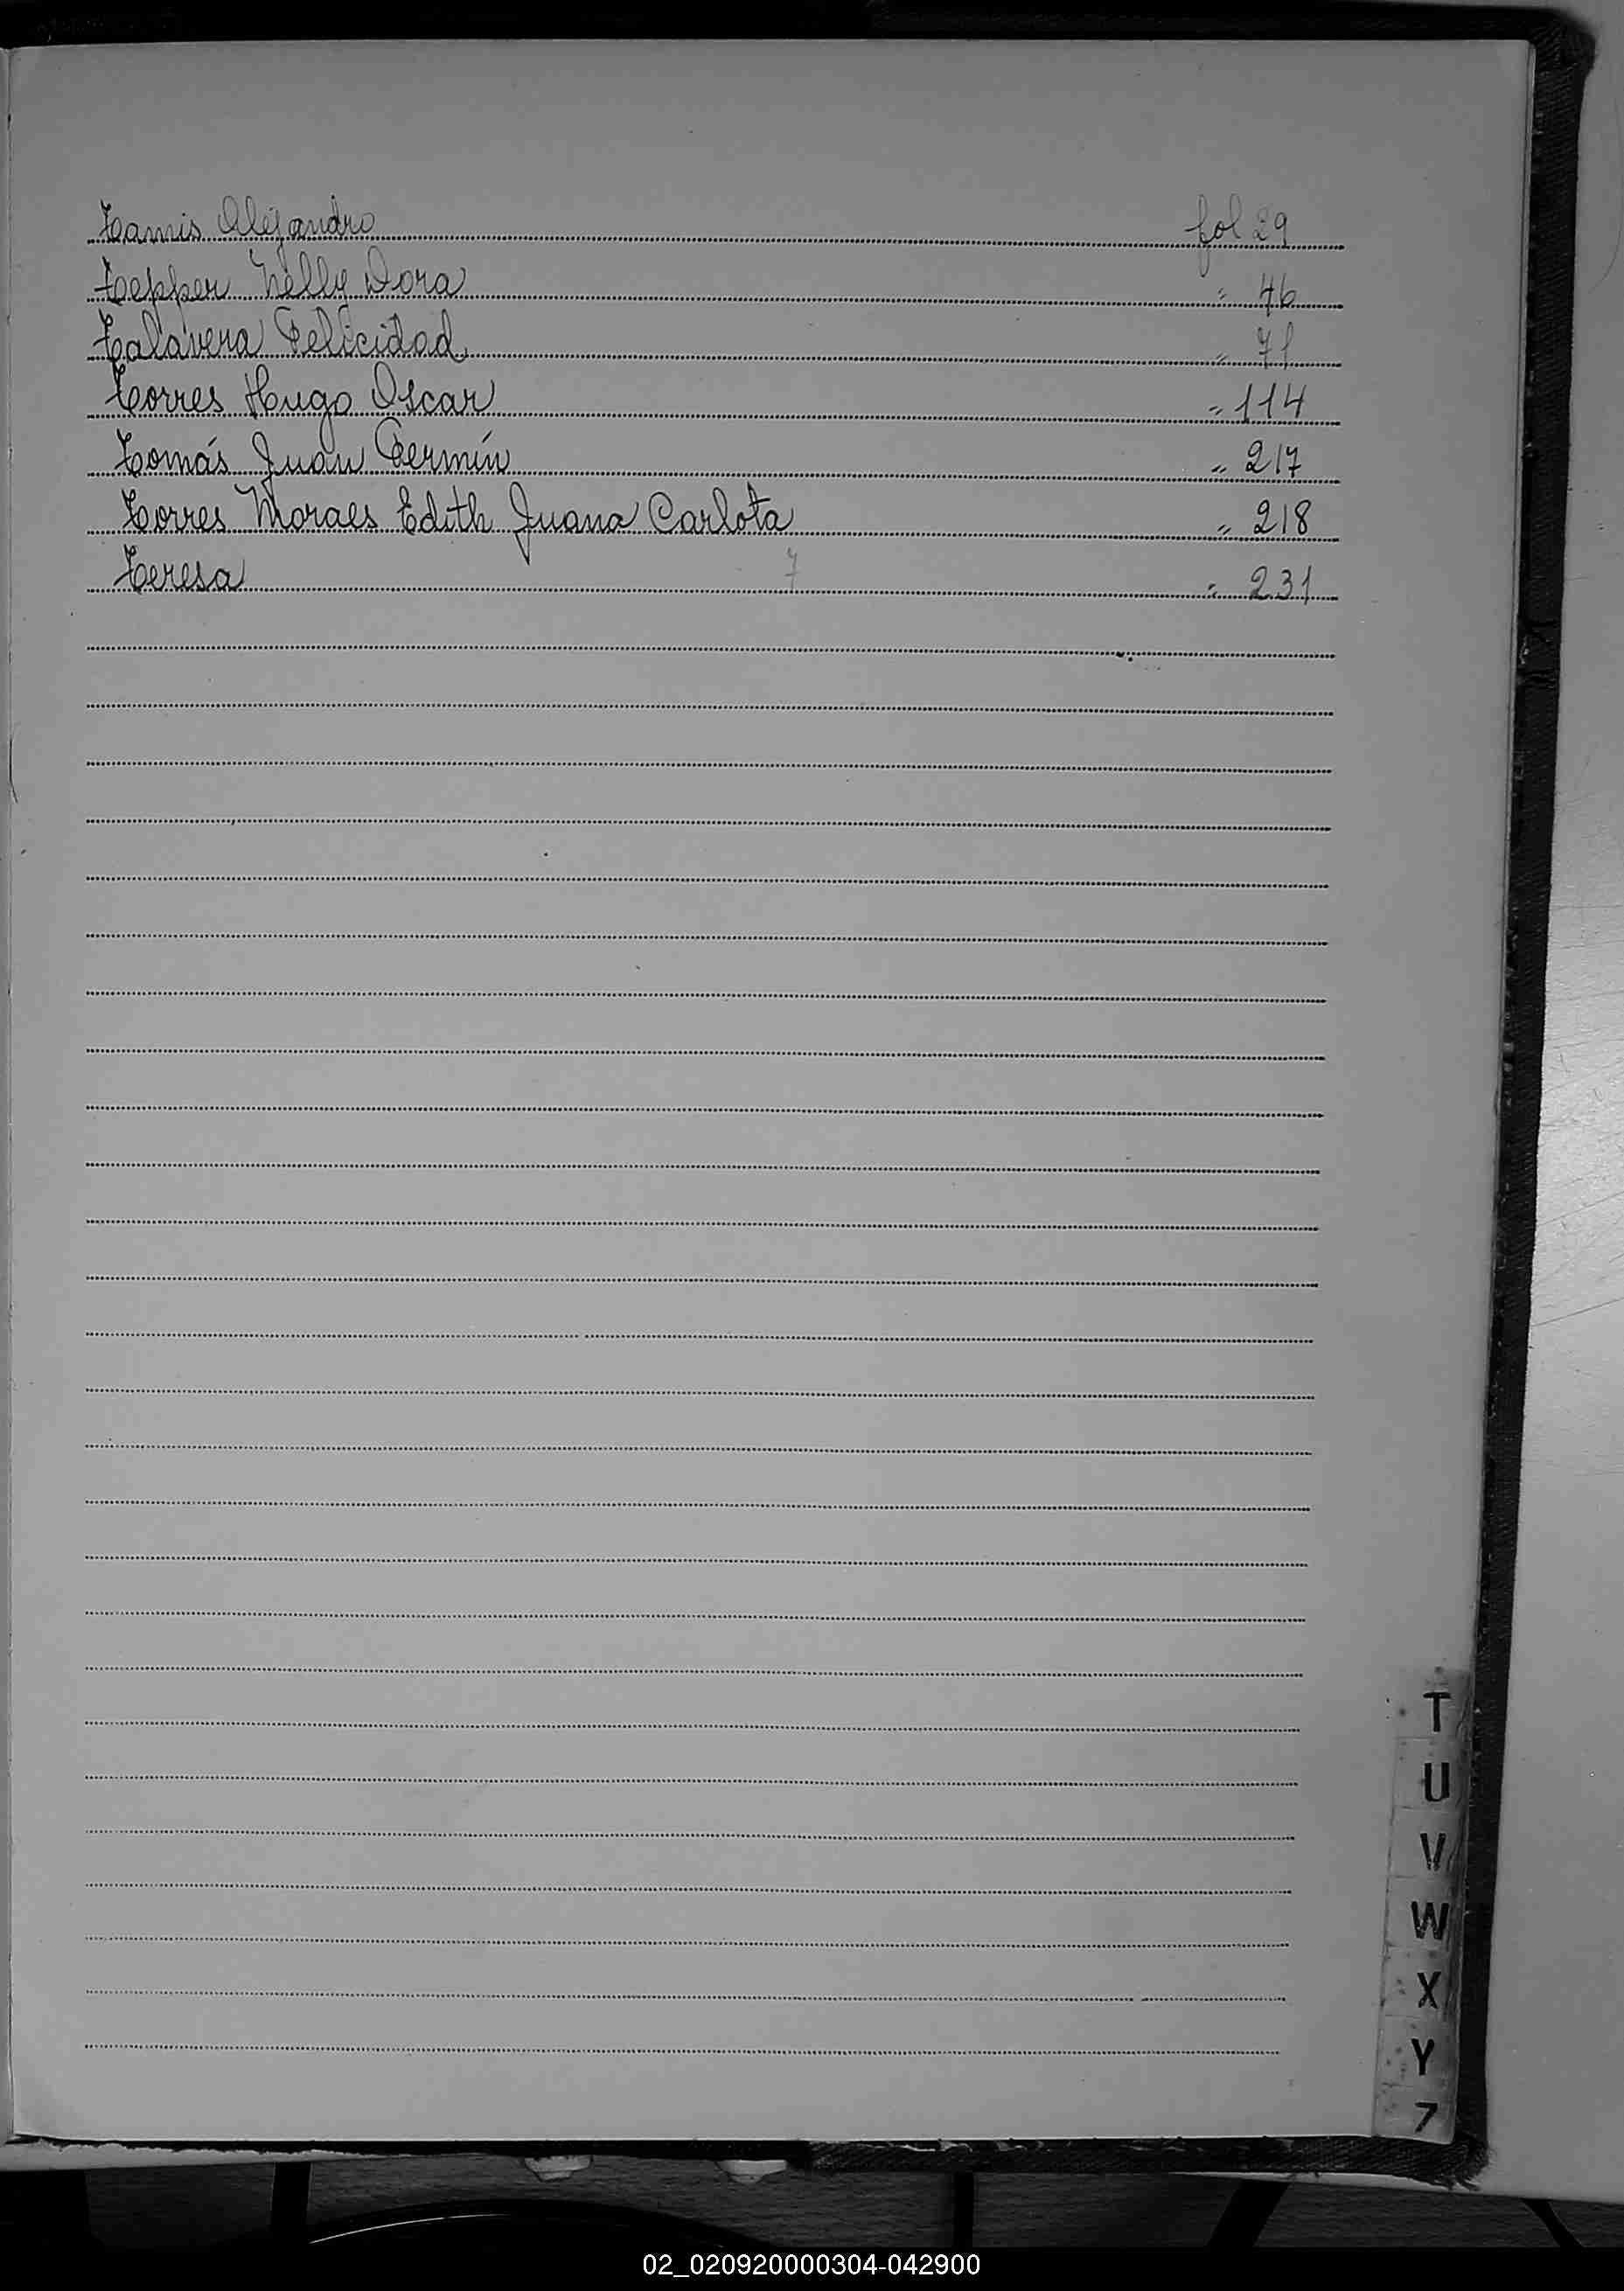 Tamis Alejandro fol 29
Tepper Nelly Dora " 46
Talavera Felicidad " 71
Torres Hugo Oscar " 114
Tomás Juan Fermín " 217
Torres Moraes Edith Juana Carlota " 218
Teresa 7 " 231
T
U
V
W
X
Y
Z
02_020920000304-042900